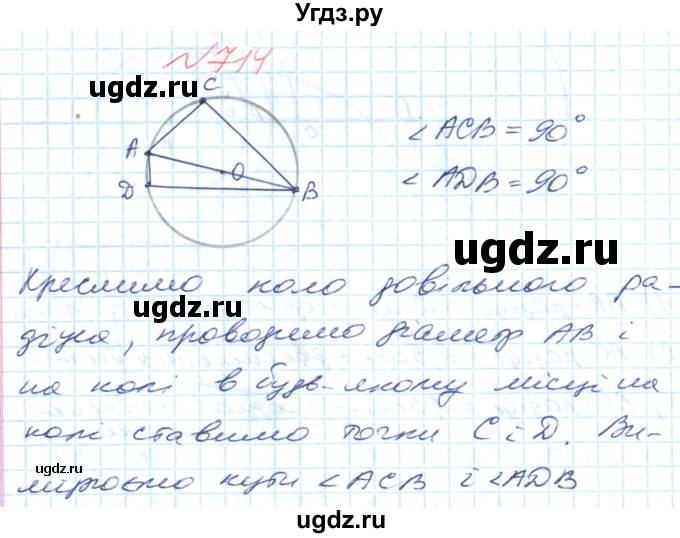 Угдз.ру
№714
ugdz.ru
C
A
D
O
B
∠ACB = 90°
∠ADB = 90°
ugdz.ru
Креслимо коло довільного ра-
ugdz.ru
діуса, проводимо діаметр AB і
на колі в будь-якому місці на
колі ставимо точки C і D. Ви-
ugdz.ru
ugdz.ru
міряємо кути ∠ACB і ∠ADB
ugdz.ru